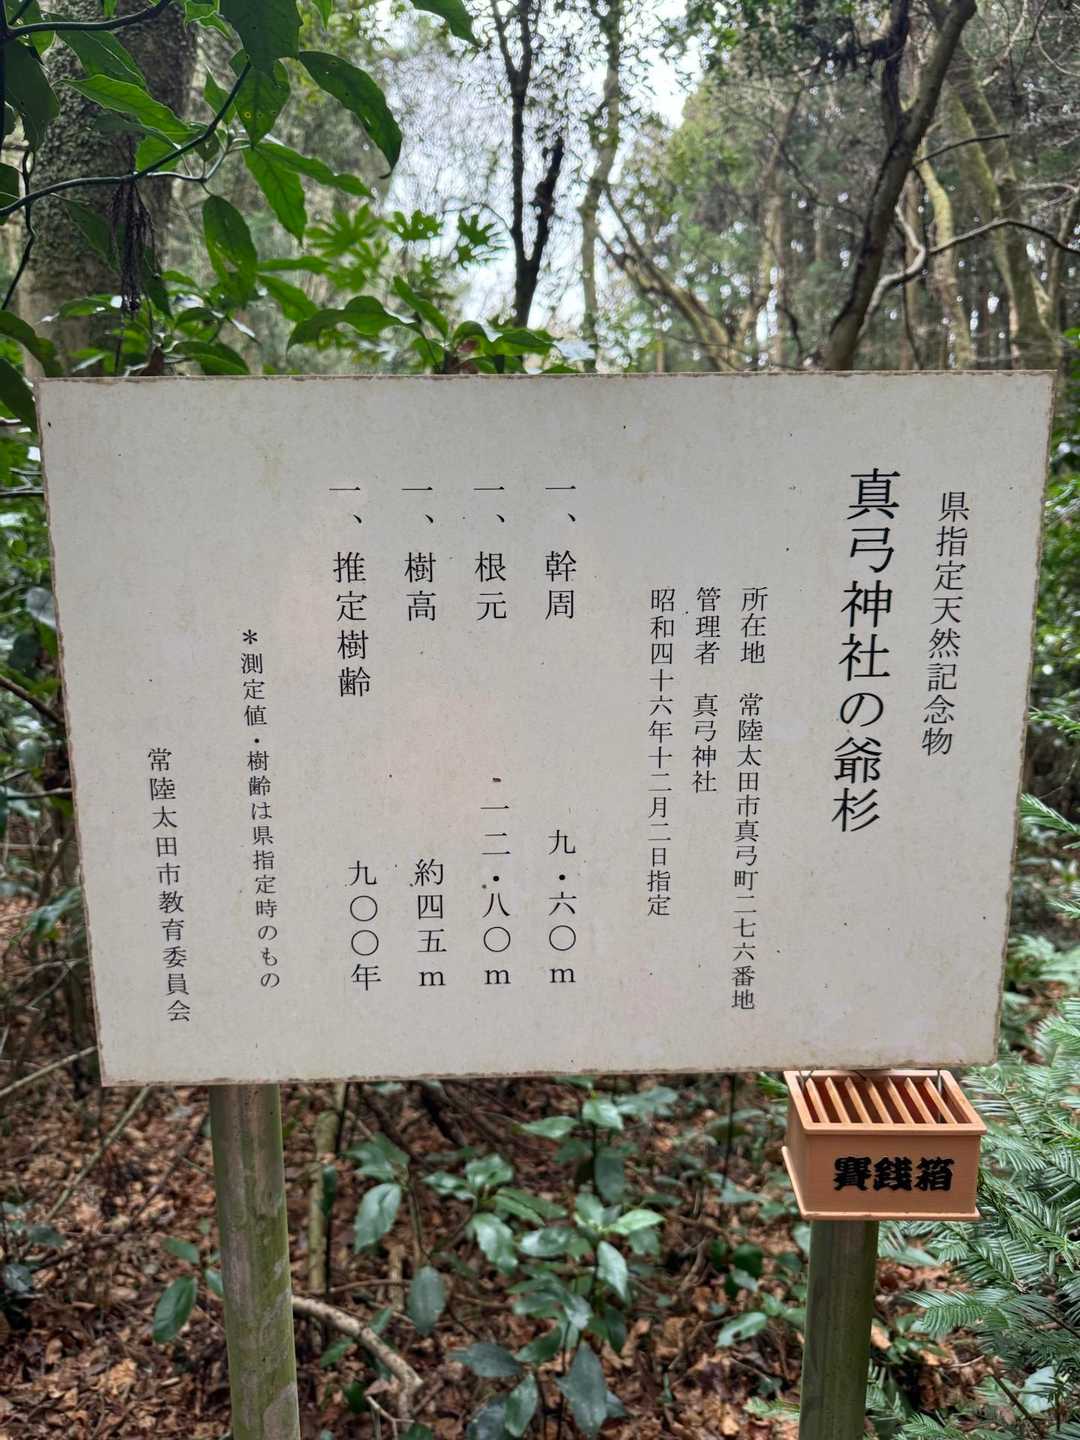 県指定天然記念物
真弓神社の爺杉
所在地　常陸太田市真弓町二七六番地
管理者　真弓神社
昭和四十六年十二月二日指定
一、幹周　九・六〇m
一、根元　一二・八〇m
一、樹高　約四五m
一、推定樹齢　九〇〇年
＊測定値・樹齢は県指定時のもの
常陸太田市教育委員会
賽銭箱